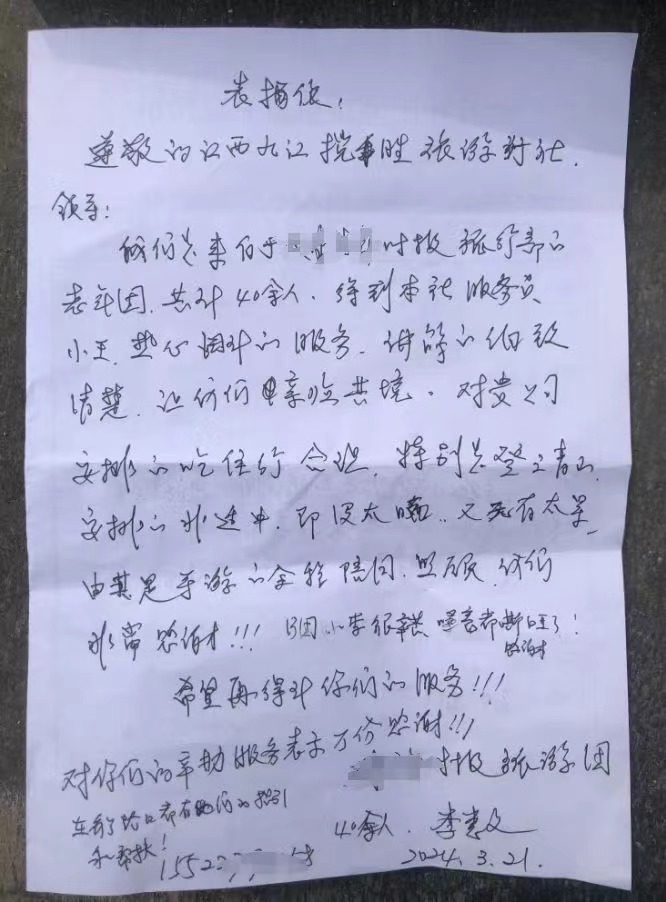 表扬信！
尊敬的江西九江揽胜旅游对社.
领导：
我们是来自于 时报旅行部的
老年团.共计40余人.得到本社服务员
小王.热心周到的服务.讲解的细致
清楚.让我们身临其境.对贵公司
安排的吃住行合理.特别是登山
安排的非适中.即没太晒..又没有太累
由其是导游的全程陪同.照顾,我们
非常感谢!!! B团小李很辛苦 嗓音都嘶哑了!
感谢
希望再得到你们的服务!!!
对你们的辛勤服务表示万份感谢!!!
时报旅游团
在每个路口都有她们的指引
和帮扶!
40余人.
155
2024.3.21.